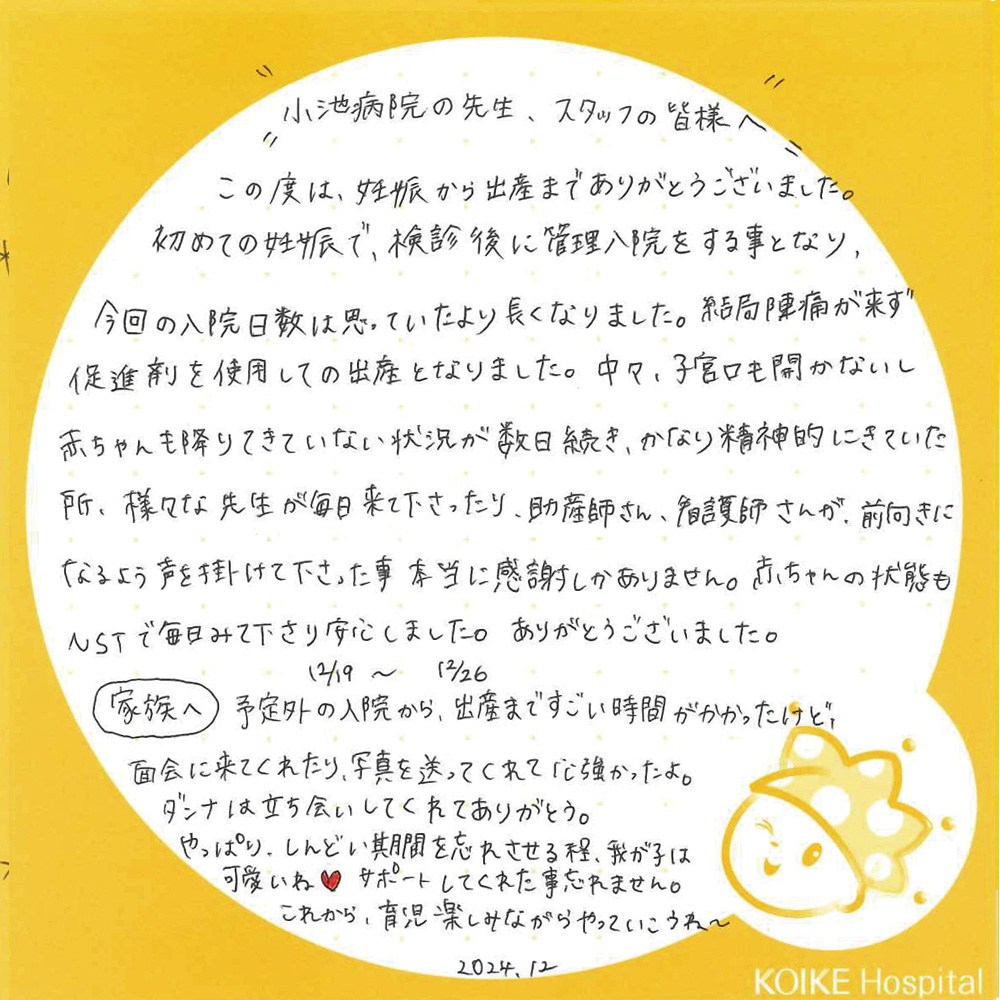 小池病院の先生、スタッフの皆様へ
この度は、妊娠から出産までありがとうございました。
初めての妊娠で、検診後に管理入院をする事となり、
今回の入院日数は思っていたより長くなりました。結局陣痛が来ず
促進剤を使用しての出産となりました。中々、子宮口も開かないし
赤ちゃんも降りてきていない状況が数日続き、かなり精神的にきていた
所、様々な先生が毎日来て下さったり、助産師さん、看護師さんが、前向きに
なるよう声を掛けて下さった事本当に感謝しかありません。赤ちゃんの状態も
NSTで毎日みて下さり安心しました。ありがとうございました。
12/19 〜 12/26
家族へ 予定外の入院から、出産まですごい時間がかかったけど、
面会に来てくれたり、写真を送ってくれて心強かったよ。
ダンナは立ち会いしてくれてありがとう。
やっぱり、しんどい期間を忘れさせる程、我が子は
可愛いね♥ サポートしてくれた事忘れません。
これから、育児楽しみながらやっていこうね〜
2024.12
KOIKE Hospital